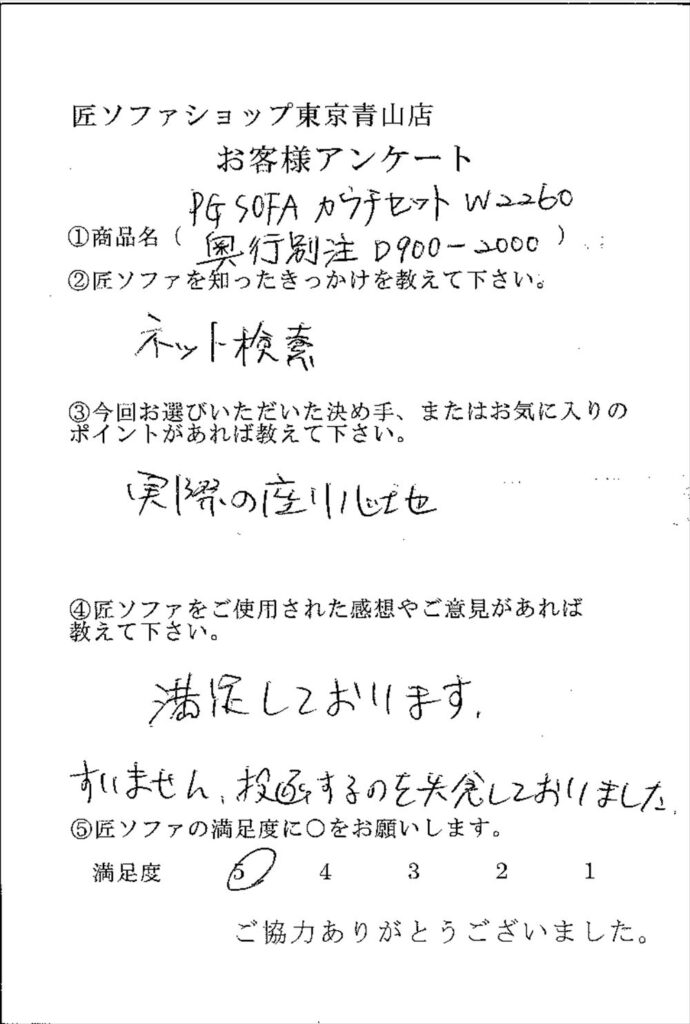 匠ソファショップ東京青山店
お客様アンケート
PG SOFA カウチセット W2260
①商品名（ 奥行別注 D900-2000 ）
②匠ソファを知ったきっかけを教えて下さい。
ネット検索
③今回お選びいただいた決め手、またはお気に入りの
ポイントがあれば教えて下さい。
実際の座り心地
④匠ソファをご使用された感想やご意見があれば
教えて下さい。
満足しております.
すいません、投函するのを失念しておりました.
⑤匠ソファの満足度に〇をお願いします。
満足度 5 4 3 2 1
ご協力ありがとうございました。